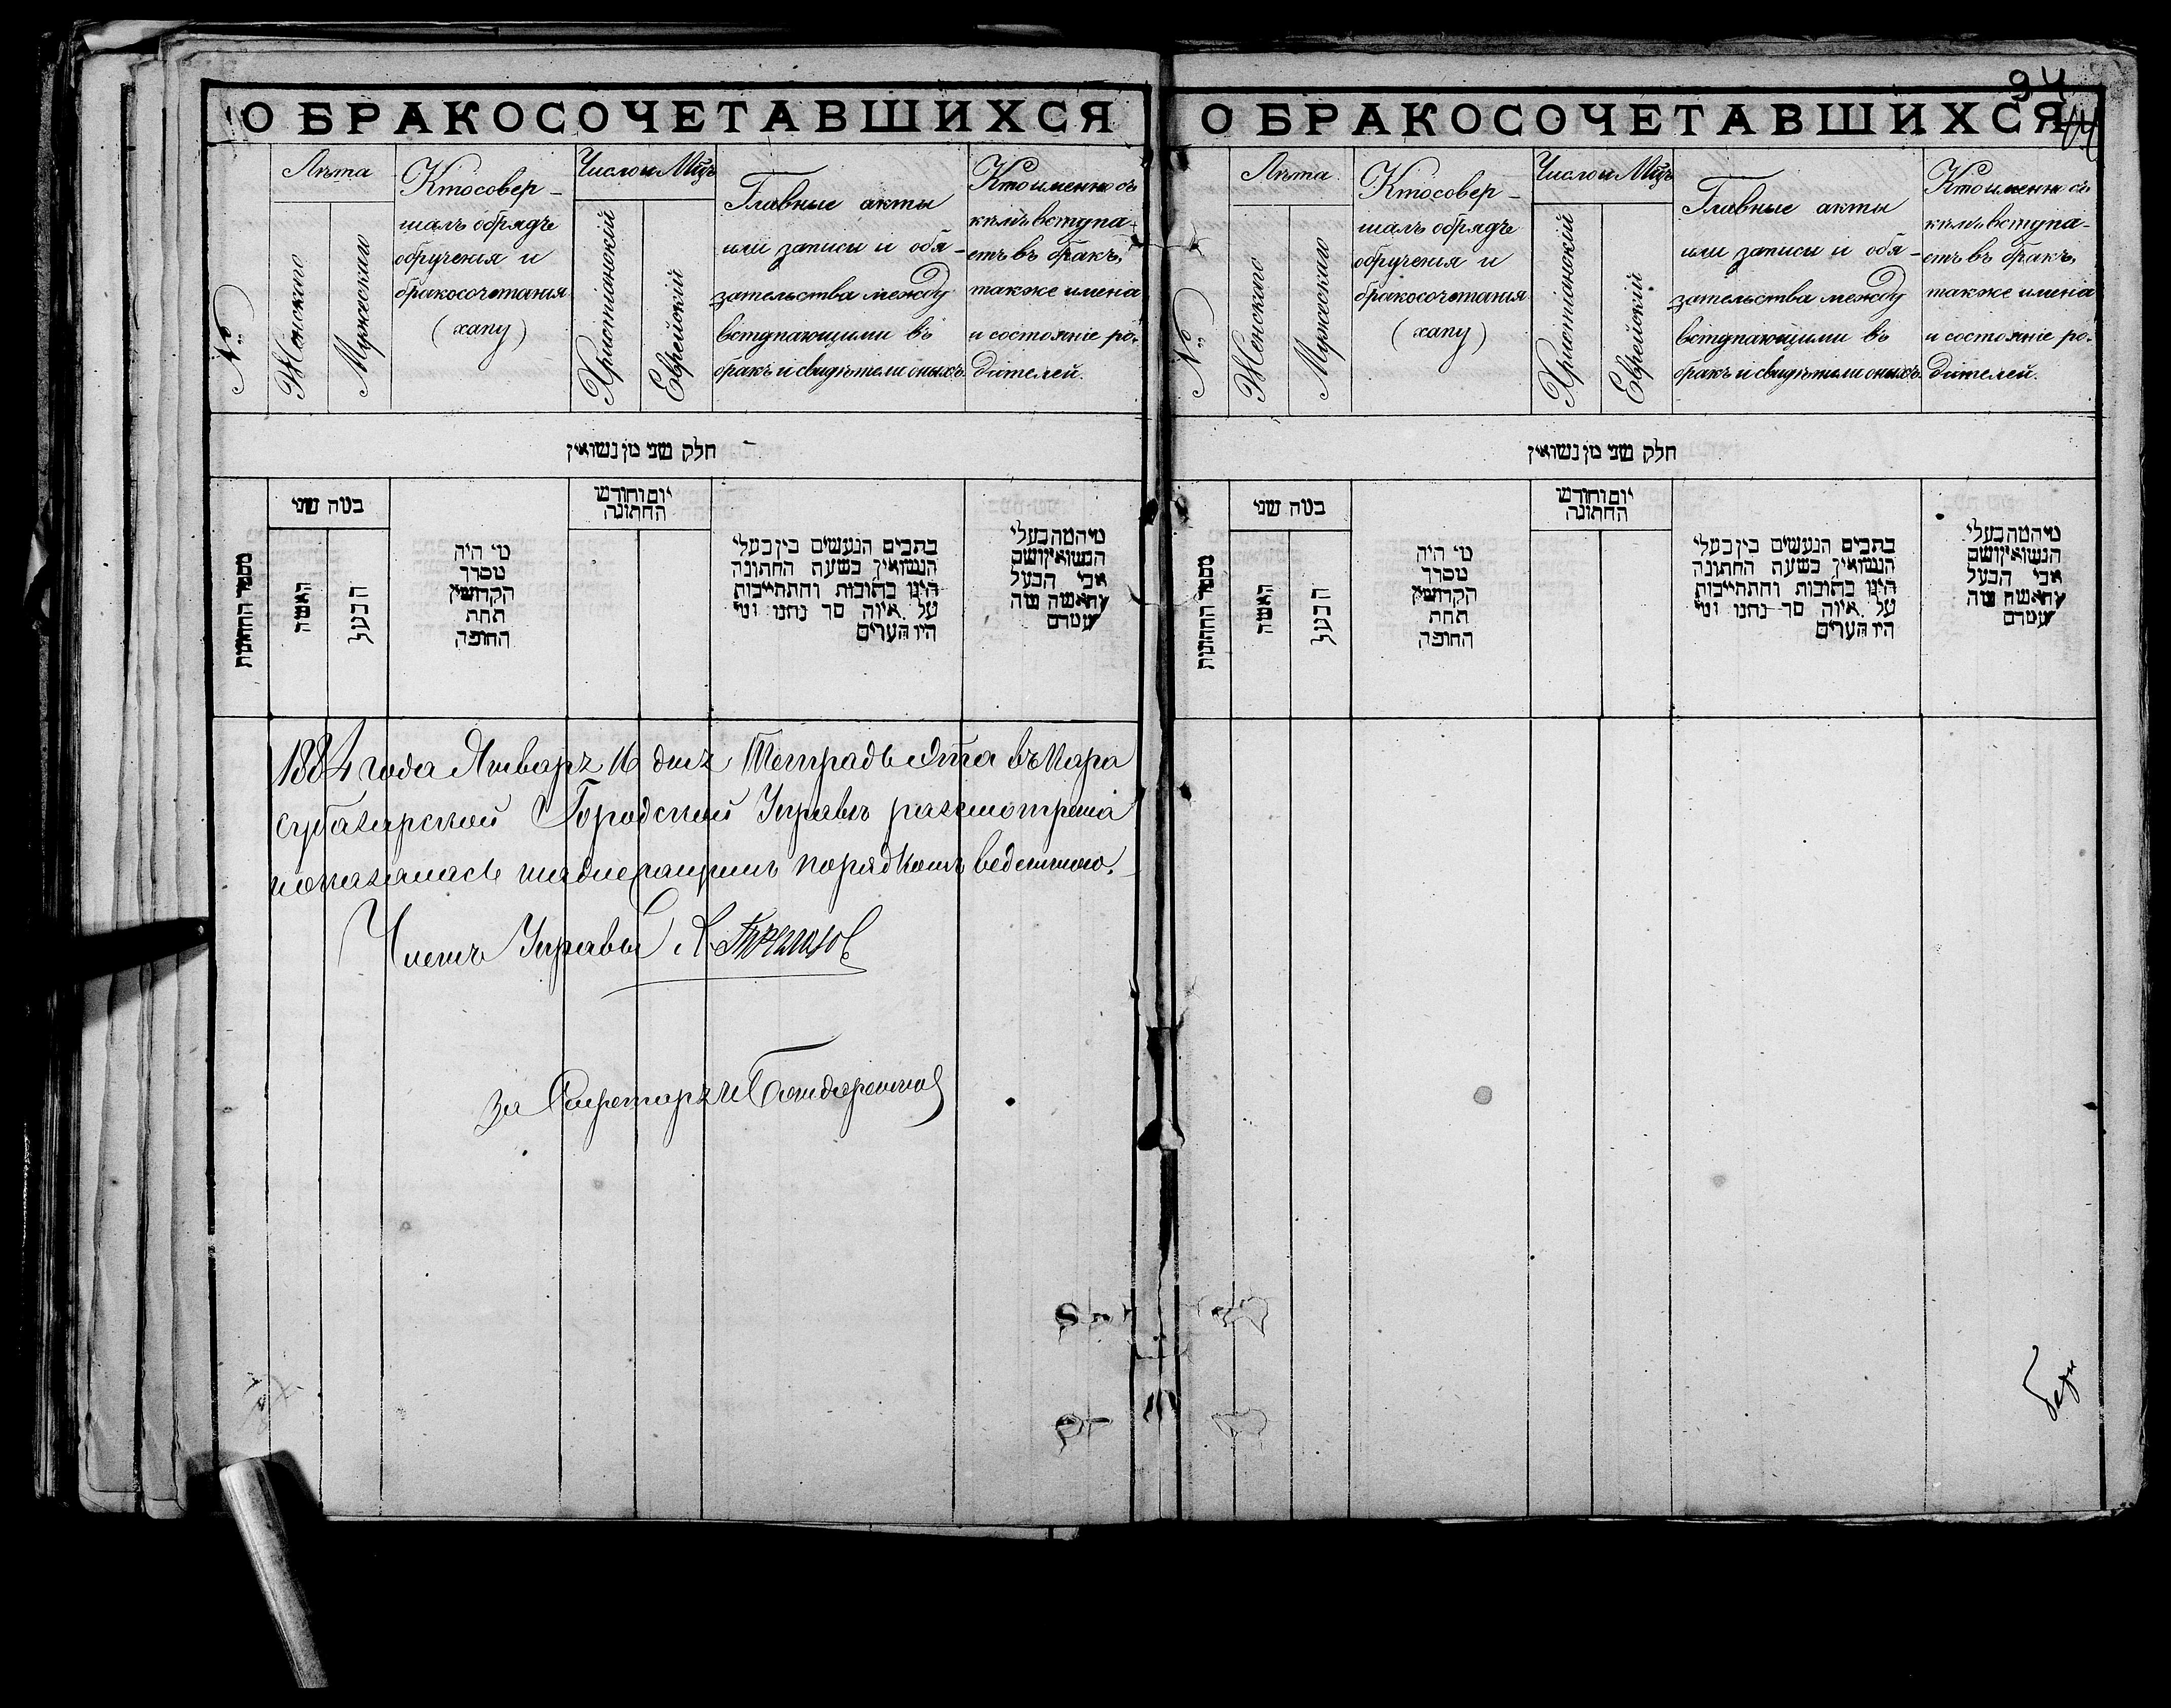 О БРАКОСОЧЕТАВШИХСЯ
№
Лѣта
Женскаго
Мужескаго
Кто совер-
шалъ обрядъ
обрученія и
бракосочетанія
(хапу)
Число и Мѣц҃ъ
Христіанскій
Еврейскій
Главные акты
или записи и обя-
зательства между
вступающими въ
бракъ и свидѣтели оныхъ.
Кто именно съ
кѣмъ вступа-
етъ въ бракъ,
также имена
и состояніе ро-
дителей.
חלק שני מן נשואין
מספר החתונות
כמה שני
האשה
הבעל
מי היה
מסדר
הקדושין
תחת
החופה
יום וחודש
החתונה
כתבים הנעשים בין בעלי
הנשואין בשעת החתונה
היינו כתובות והתחייבות
על איזה סך נתנו ומי
היו העדים
מי המה בעלי
הנשואין ושם
אבי הבעל
והאשה
1884 года Января 16 дня Тетрадь эта въ Кара
субазарской Городской Управѣ разсмотрена
показалась надлежащимъ порядкомъ веденною.
Членъ Управы
За Секретаря
94
О БРАКОСОЧЕТАВШИХСЯ
№
Лѣта
Женскаго
Мужескаго
Кто совер-
шалъ обрядъ
обрученія и
бракосочетанія
(хапу)
Число и Мѣц҃ъ
Христіанскій
Еврейскій
Главные акты
или записи и обя-
зательства между
вступающими въ
бракъ и свидѣтели оныхъ.
Кто именно съ
кѣмъ вступа-
етъ въ бракъ,
также имена
и состояніе ро-
дителей.
חלק שני מן נשואין
מספר החתונות
כמה שני
האשה
הבעל
מי היה
מסדר
הקדושין
תחת
החופה
יום וחודש
החתונה
כתבים הנעשים בין בעלי
הנשואין בשעת החתונה
היינו כתובות והתחייבות
על איזה סך נתנו ומי
היו העדים
מי המה בעלי
הנשואין ושם
אבי הבעל
והאשה